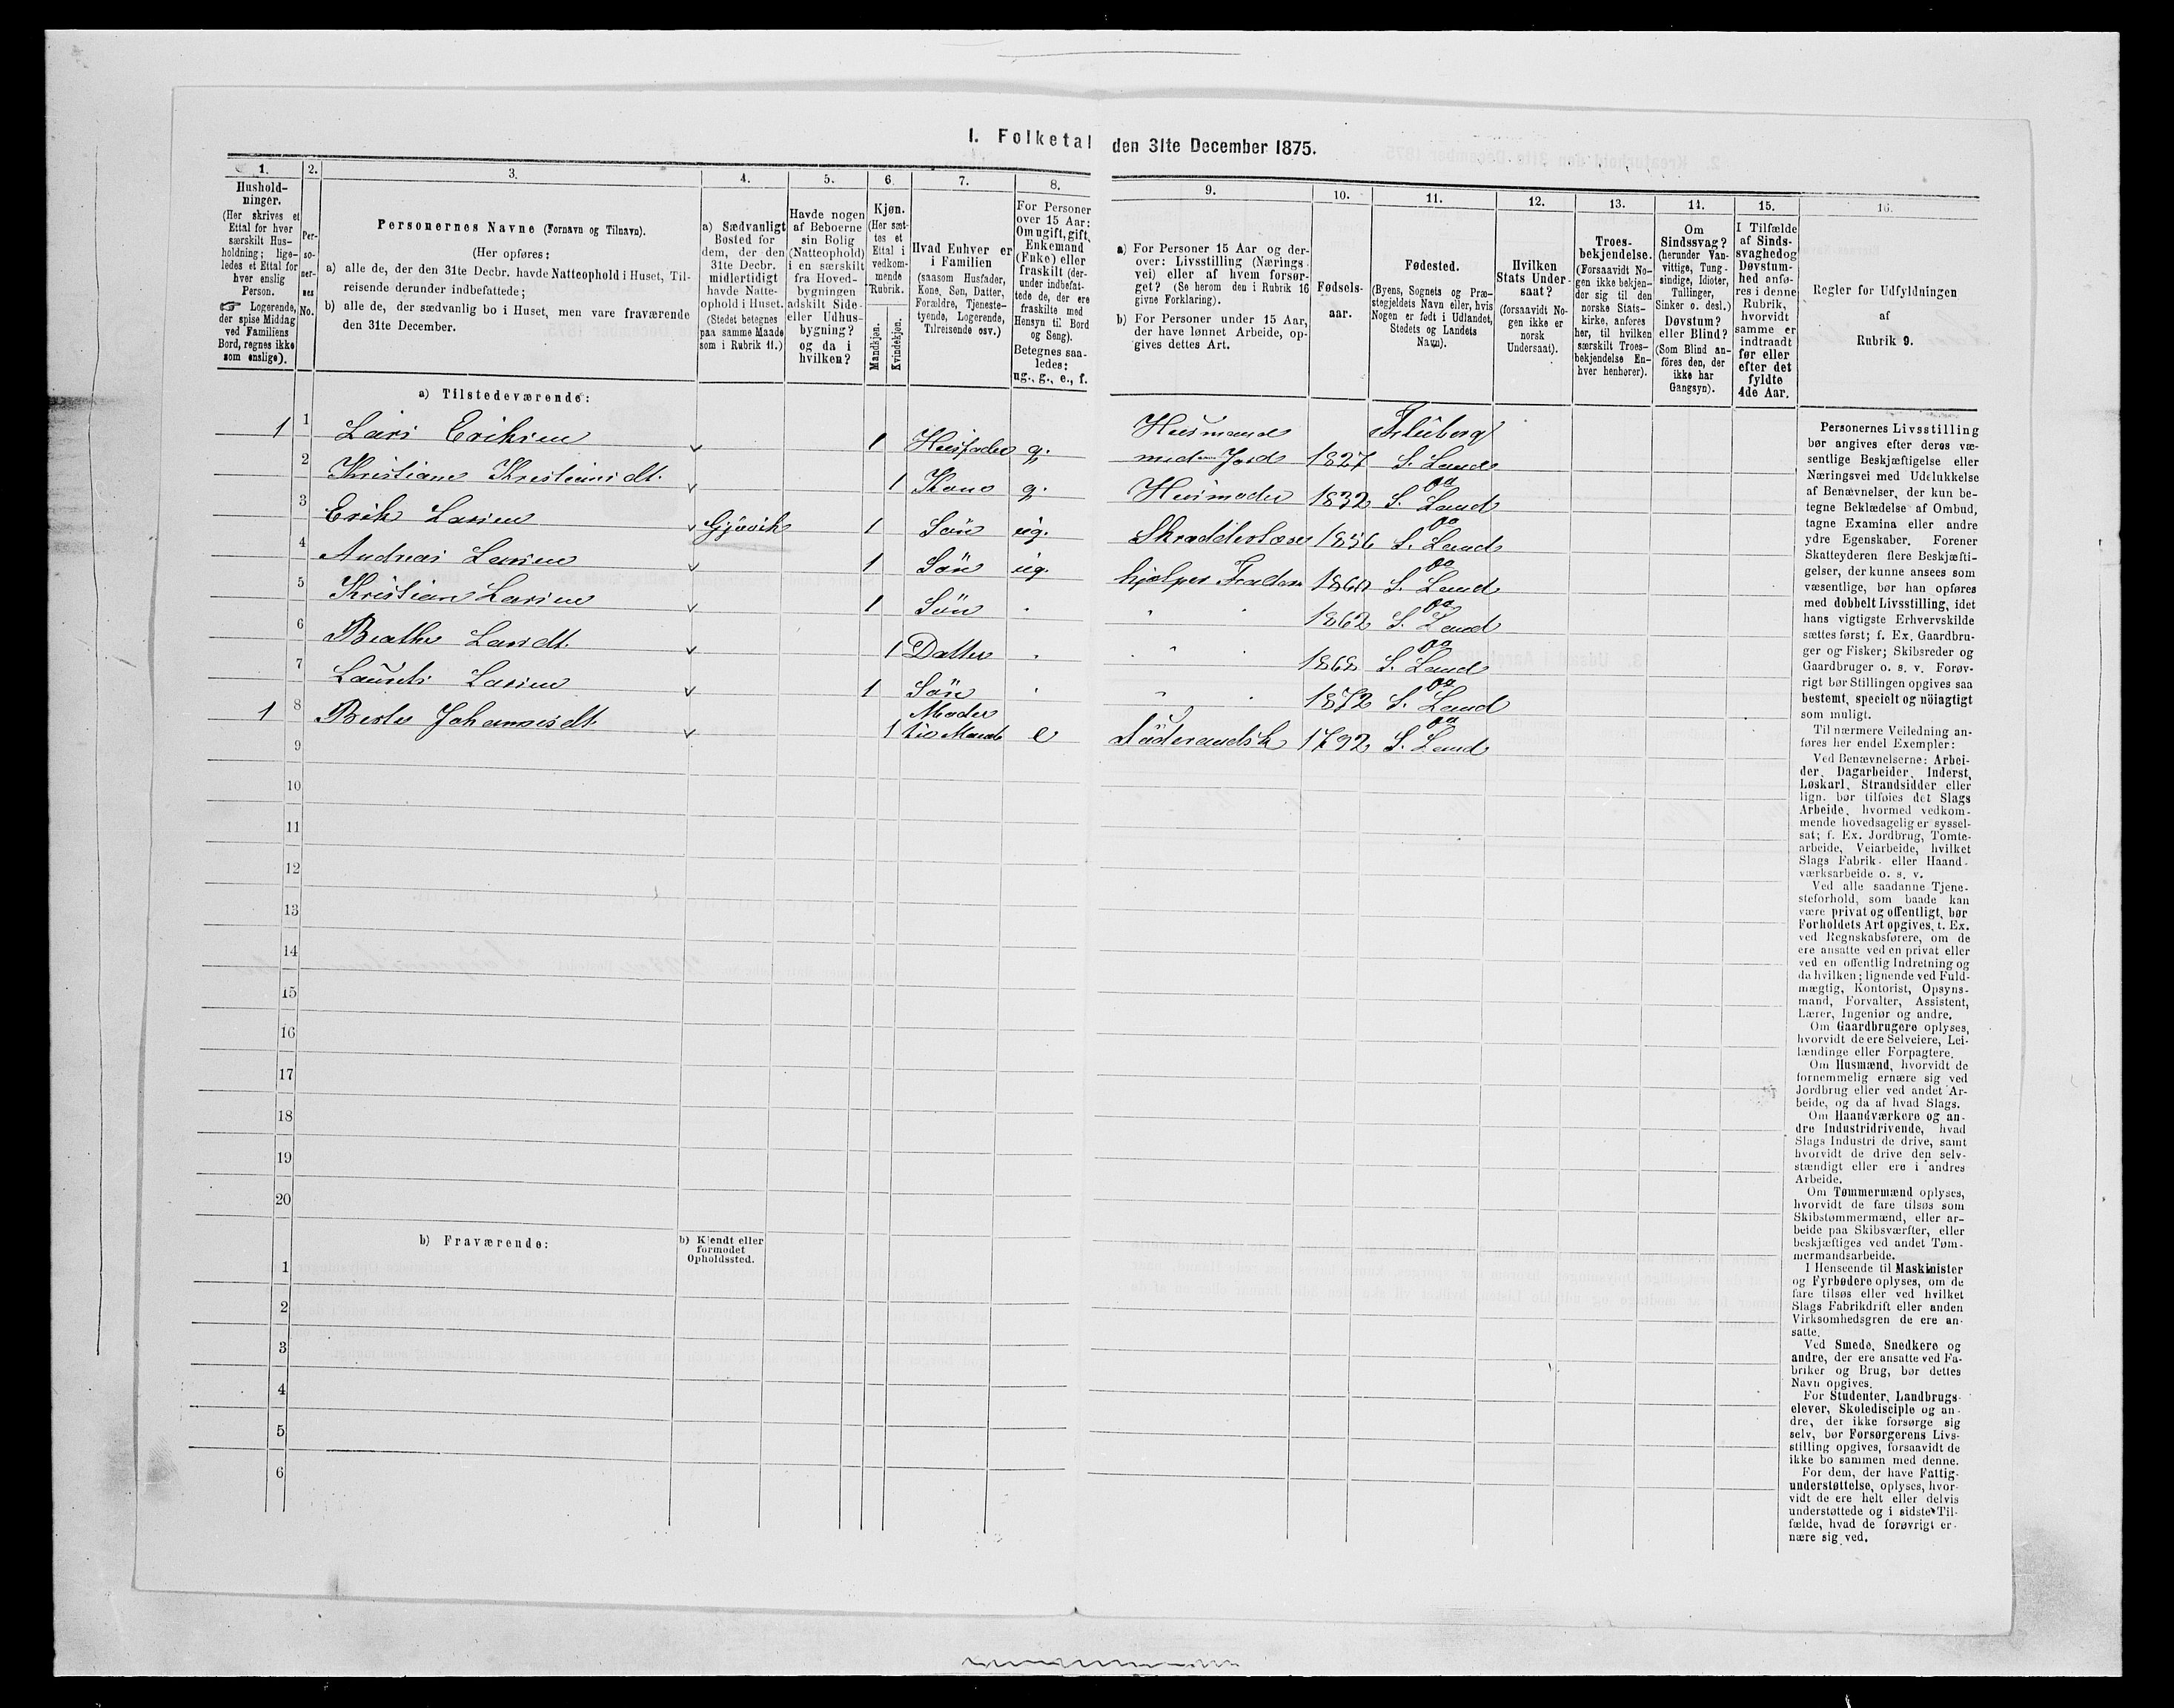 I. Folketal den 31te December 1875.
1.
Hushold-
ninger.
(Her skrives et
Ettal for hver
særskilt Hus-
holdning; lige-
ledes et Ettal for
hver enslig
Person.
☞ Logerende,
der spise Middag
ved Familiens
Bord, regnes ikke
som enslige).
2.
Per-
so-
ner-
nes
No.
3.
Personernes Navne (Fornavn og Tilnavn).
(Her opføres:
a) alle de, der den 31te Decbr. havde Natteophold i Huset, Til-
reisende derunder indbefattede;
b) alle de, der sædvanlig bo i Huset, men vare fraværende
den 31te December.
4.
a) Sædvanligt
Bosted for
dem, der den
31te Decbr.
midlertidigt
havde Natte-
ophold i Huset.
(Stedet betegnes
paa samme Maade
som i Rubrik 11.)
5.
Havde nogen
af Beboerne
sin Bolig
(Natteophold)
i en særskilt
fra Hoved-
bygningen
adskilt Side-
eller Udhus-
bygning?
og da i
hvilken?
6.
Kjøn.
(Her sæt-
tes et
Ettal i
vedkom-
mende
Rubrik.
Mandkjøn.
Kvindekjøn.
7.
Hvad Enhver er
i Familien
(saasom Husfader,
Kone, Søn, Datter,
Forældre, Tjeneste-
tyende, Logerende,
Tilreisende osv.)
8.
For Personer
over 15 Aar:
Om ugift, gift,
Enkemand
(Enke) eller
fraskilt (der-
under indbefat-
tede de, der ere
fraskilte med
Hensyn til Bord
og Seng).
Betegnes saa-
ledes:
ug., g., e., f.
9.
a) For Personer 15 Aar og der-
over: Livsstilling (Nærings-
vei) eller af hvem forsør-
get? (Se herom den i Rubrik 16
givne Forklaring).
b) For Personer under 15 Aar,
der have lønnet Arbeide, op-
gives dettes Art.
10.
Fødsels-
aar.
11.
Fødested.
(Byens, Sognets og Præ-
stegjeldets Navn eller, hvis
Nogen er født i Udlandet,
Stedets og Landets
Navn).
12.
Hvilken
Stats Under-
saat?
(forsaavidt No-
gen ikke er
norsk
Undersaat).
13.
Troes-
bekjendelse.
(Forsaavidt No-
gen ikke bekjen-
der sig til den
norske Stats-
kirke, anføres
her, til hvilken
særskilt Troes-
bekjendelse En-
hver henhører).
14.
Om
Sindssvag?
(herunder Van-
vittige, Tung-
sindige, Idioter,
Tullinger,
Sinker o. desl.)
Døvstum?
eller Blind?
(Som Blind an-
föres den, der
ikke har
Gangsyn).
15.
I Tilfælde
af Sinds-
svaghed og
Døvstum-
hed anfø-
res i denne
Rubrik,
hvorvidt
samme er
indtraadt
før eller
efter det
fyldte
4de Aar.
16.
Regler for Udfyldningen
af
Rubrik 9.
a) Tilstedeværende:
1 1 Lars Eriksen 1 Husfader g. Husmand med Jord 1827 Fluberg S. Land
2 Kristiane Kristiansdt. 1 Kone g. Husmoder 1832 S. Land
3 Erik Larsen Gjøvik 1 Søn ug. 1856 S. Land
4 Andreas Larsen 1 Søn ug. hjælper Faderen 1860 S. Land
5 Kristian Larsen 1 Søn 1862 S. Land
6 Beathe Larsdt. 1 Datter 1868 S. Land
7 Laurits Larsen 1 Søn 1872 S. Land
1 8 Johannesdt. 1 Moder e Føderaadsk 1792 S. Land
9
10
11
12
13
14
15
16
17
18
19
20
b) Fraværende:
b) Kjendt eller
formodet
Opholdssted.
1
2
3
4
5
6
Personernes Livsstilling
bør angives efter deres væ-
sentlige Beskjæftigelse eller
Næringsvei med Udelukkelse
af Benævnelser, der kun be-
tegne Beklædelse af Ombud,
tagne Examina eller andre
ydre Egenskaber. Forener
Skatteyderen flere Beskjæfti-
gelser, der kunne ansees som
væsentlige, bør han opføres
med dobbelt Livsstilling, idet
hans vigtigste Erhvervskilde
sættes først; f. Ex. Gaardbru-
ger og Fisker; Skibsreder og
Gaardbruger o. s. v. Forøv-
rigt bør Stillingen opgives saa
bestemt, specielt og nöiagtigt
som muligt.
Til nærmere Veiledning an-
føres her endel Exempler:
Ved Benævnelserne: Arbei-
der, Dagarbeider, Inderst,
Løskarl, Strandsidder eller
lign. bør tilføies det Slags
Arbeide, hvormed vedkom-
mende hovedsagelig er syssel-
sat; f. Ex. Jordbrug, Tomte-
arbeide, Veiarbeide, hvilket
Slags Fabrik- eller Haand-
værksarbeide o. s. v.
Ved alle saadanne Tjene-
steforhold, som baade kan
være privat og offentligt, bør
Forholdets Art opgives, t. Ex.
ved Regnskabsførere, om de
ere ansatte ved en privat eller
ved en offentlig Indretning og
da hvilken; lignende ved Fuld-
mægtig, Kontorist, Opsyns-
mand, Forvalter, Assistent,
Lærer, Ingeniør og andre.
Om Gaardbrugere oplyses,
hvorvidt de ere Selveiere, Lei-
lændinge eller Forpagtere.
Om Husmænd, hvorvidt de
fornemmelig ernære sig ved
Jordbrug eller ved andet Ar-
beide, og da af hvad Slags.
Om Haandværkere og an-
dre Industridrivende, hvad
Slags Industri de drive, samt
hvorvidt de drive den selv-
stændigt eller ere i andres
Arbeide.
Om Tømmermænd oplyses,
hvorvidt de fare tilsøs som
Skibstømmermænd, eller ar-
beide paa Skibsværfter, eller
beskjæftiges ved andet Tøm-
mermandsarbeide.
I Henseende til Maskinister
og Fyrbødere oplyses, om de
fare tilsøs eller ved hvilket
Slags Fabrikdrift eller anden
Virksomhedsgren de ere an-
satte.
Ved Smede, Snedkere og
andre, der ere ansatte ved Fa-
briker og Brug, bør dettes
Navn opgives.
For Studenter, Landbrugs-
elever, Skoledisciple og an-
dre, der ikke forsørge sig
selv, bør Forsørgerens Livs-
stilling opgives, forsaavidt de
ikke bo sammen med denne.
For dem, der have Fattig-
understøttelse, oplyses, hvor-
vidt de ere helt eller delvis
understøttede og i sidste Til-
fælde, hvad de forøvrigt er-
nære sig ved.